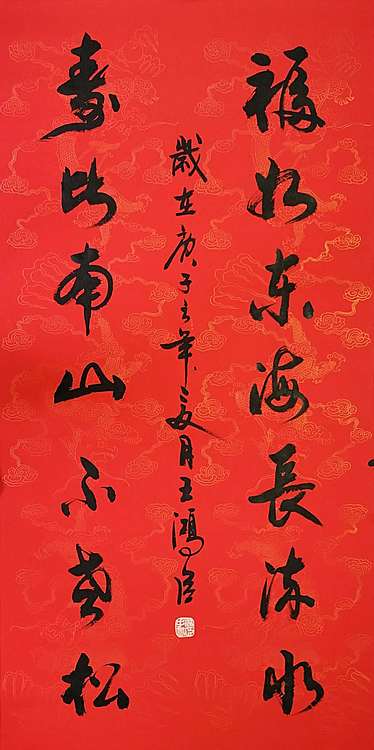 福如东海長流水
寿比南山不老松
歲在庚子之年夏月王鴻